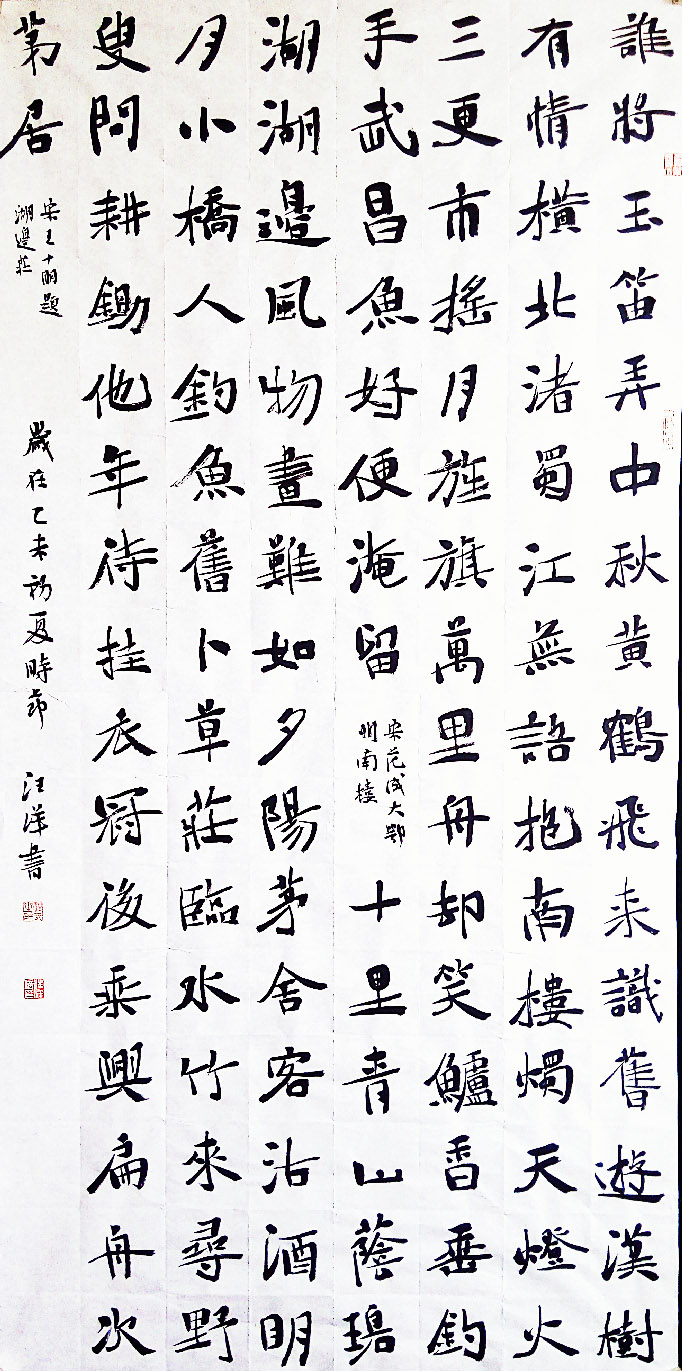 誰將玉笛弄中秋黃鶴飛来識舊遊漢樹
有情橫北渚蜀江無語抱南樓燭天燈火
三更市搖月旌旗萬里舟却笑鱸香垂釣
手武昌魚好便淹留
宋范成大鄂
州南樓
十里青山蔭碧
湖湖邊風物畫難如夕陽茅舍客沽酒明
月小橋人釣魚舊卜草莊臨水竹來尋野
叟問耕鋤他年待挂衣冠後乘興扁舟次
苐居
宋王十朋題
湖邊莊
歲在乙未初夏時節 汪洋書